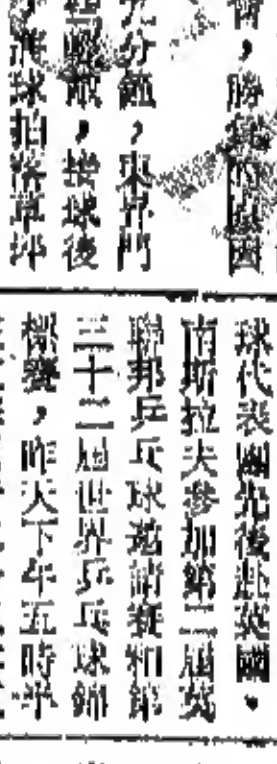 ，勝
分鐘，東昇門
，接球後
球拍落草坪
球代表團先後赴英國、
南斯拉夫參加第二屆英
聯邦乒乓球邀請賽和第
三十二屆世界乒乓球錦
標賽，昨天下午五時半